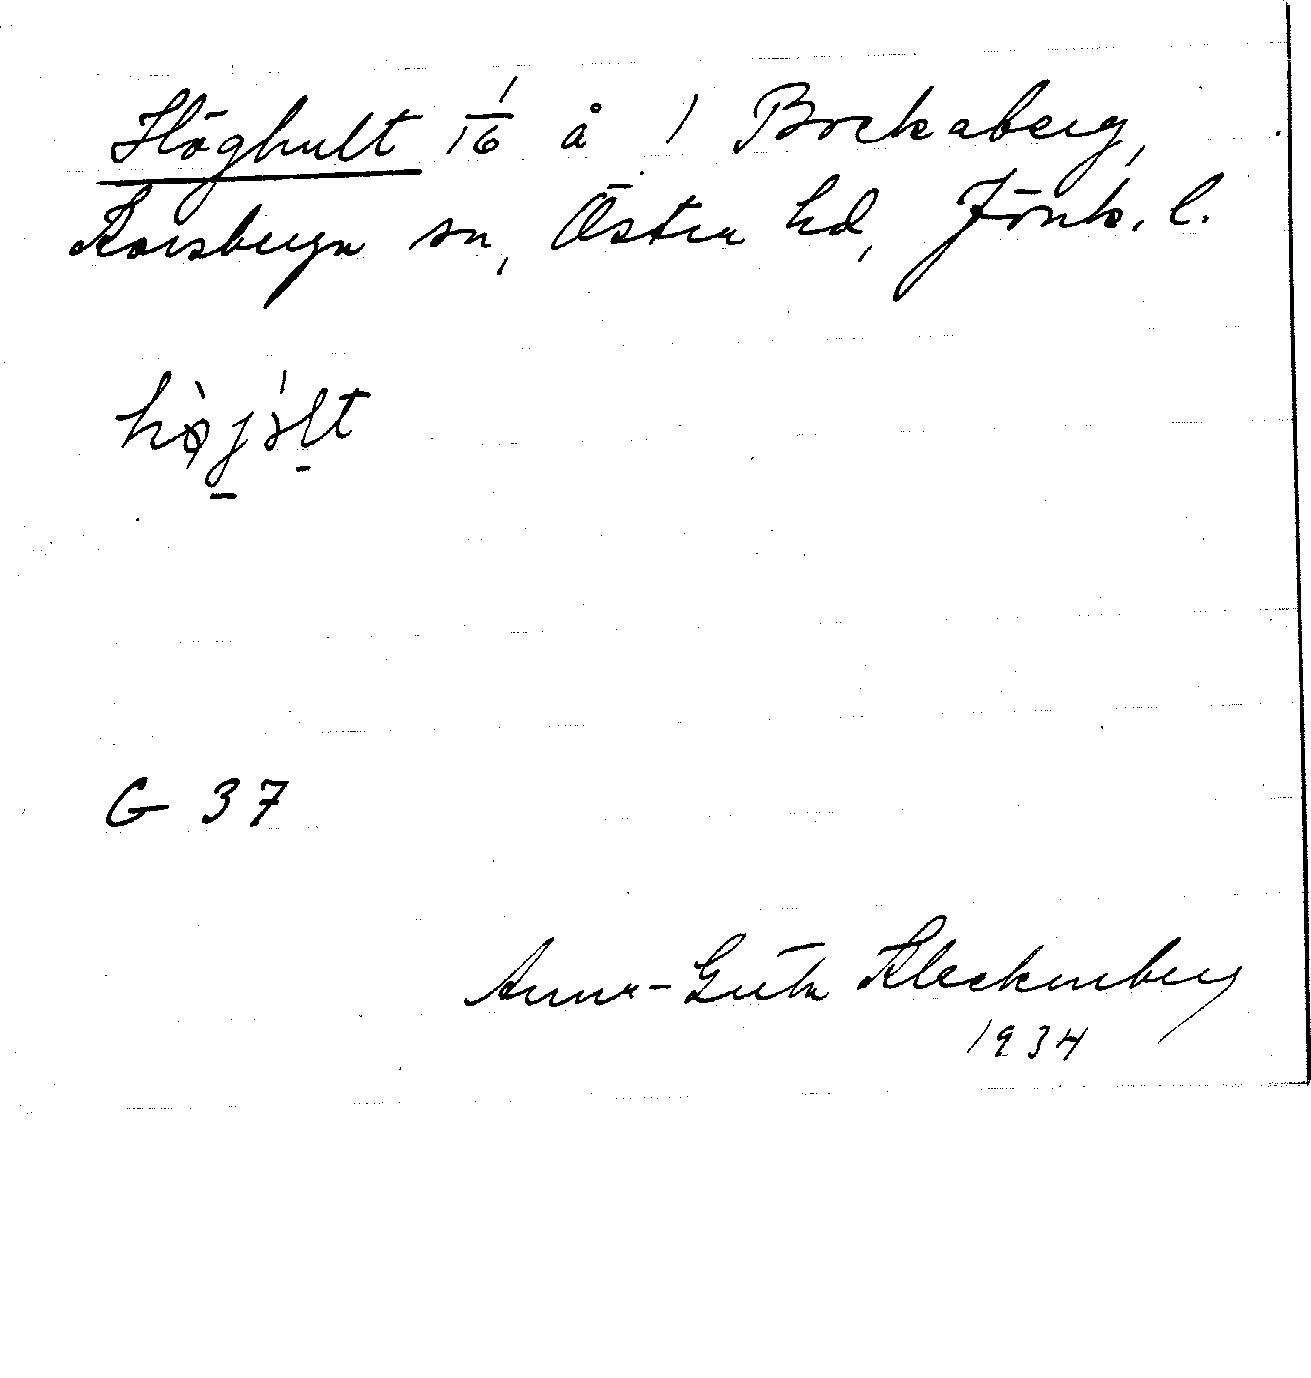 Höghult 1/16 å 1 Bockaberg,
Korsberga sn, Östra hd, Jönk. l.
hø̀jólt
G 37
Anna-Greta Kleckenberg
1934